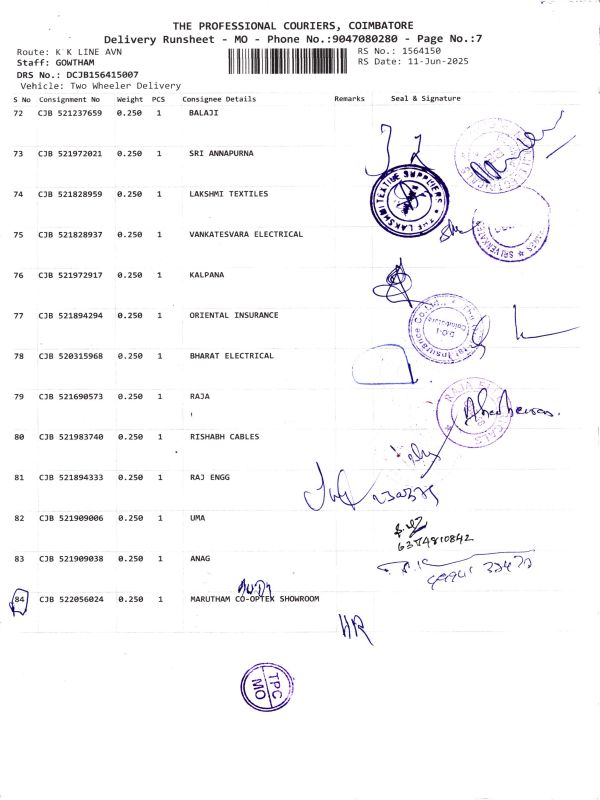 THE PROFESSIONAL COURIERS, COIMBATORE
Delivery Runsheet - MO - Phone No.:9047080280 - Page No.:7
Route: K K LINE AVN RS No.: 1564150
Staff: GOWTHAM RS Date: 11-Jun-2025
DRS No.: DCJB156415007
Vehicle: Two Wheeler Delivery
S No Consignment No Weight PCS Consignee Details Remarks Seal & Signature
72 CJB 521237659 0.250 1 BALAJI
73 CJB 521972021 0.250 1 SRI ANNAPURNA
74 CJB 521828959 0.250 1 LAKSHMI TEXTILES
THE LAKSHMI TEXTILE SUPPLIERS
75 CJB 521828937 0.250 1 VANKATESVARA ELECTRICAL
76 CJB 521972917 0.250 1 KALPANA
77 CJB 521894294 0.250 1 ORIENTAL INSURANCE
78 CJB 520315968 0.250 1 BHARAT ELECTRICAL
79 CJB 521690573 1 RAJA
0.250
80 CJB 521983740 0.250 1 RISHABH CABLES
81 CJB 521894333 0.250 1 RAJ ENGG
82 CJB 521909006 0.250 1 UMA
6384810842
83 CJB 521909038 0.250 1 ANAG
84 CJB 522056024 0.250 1 MARUTHAM CO-OPTEX SHOWROOM
HR
TPC
MO